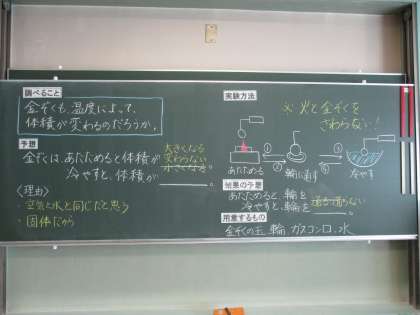 調べること
金ぞくも、温度によって、
体積が変わるのだろうか。
予想
金ぞくは、あたためると体積が
冷やすと、体積が
大きくなる
変わらない
小さくなる
。
〈理由〉
・空気と水と同じだと思う
・固体だから
実験方法
※ 火と金ぞくを
さわらない!
① ② ③ ④
あたためる 輪に通す 冷やす
結果の予想
あたためると、輪を
冷やすと、輪を
通る 通らない
。
用意するもの
金ぞくの玉、輪 ガスコンロ、水